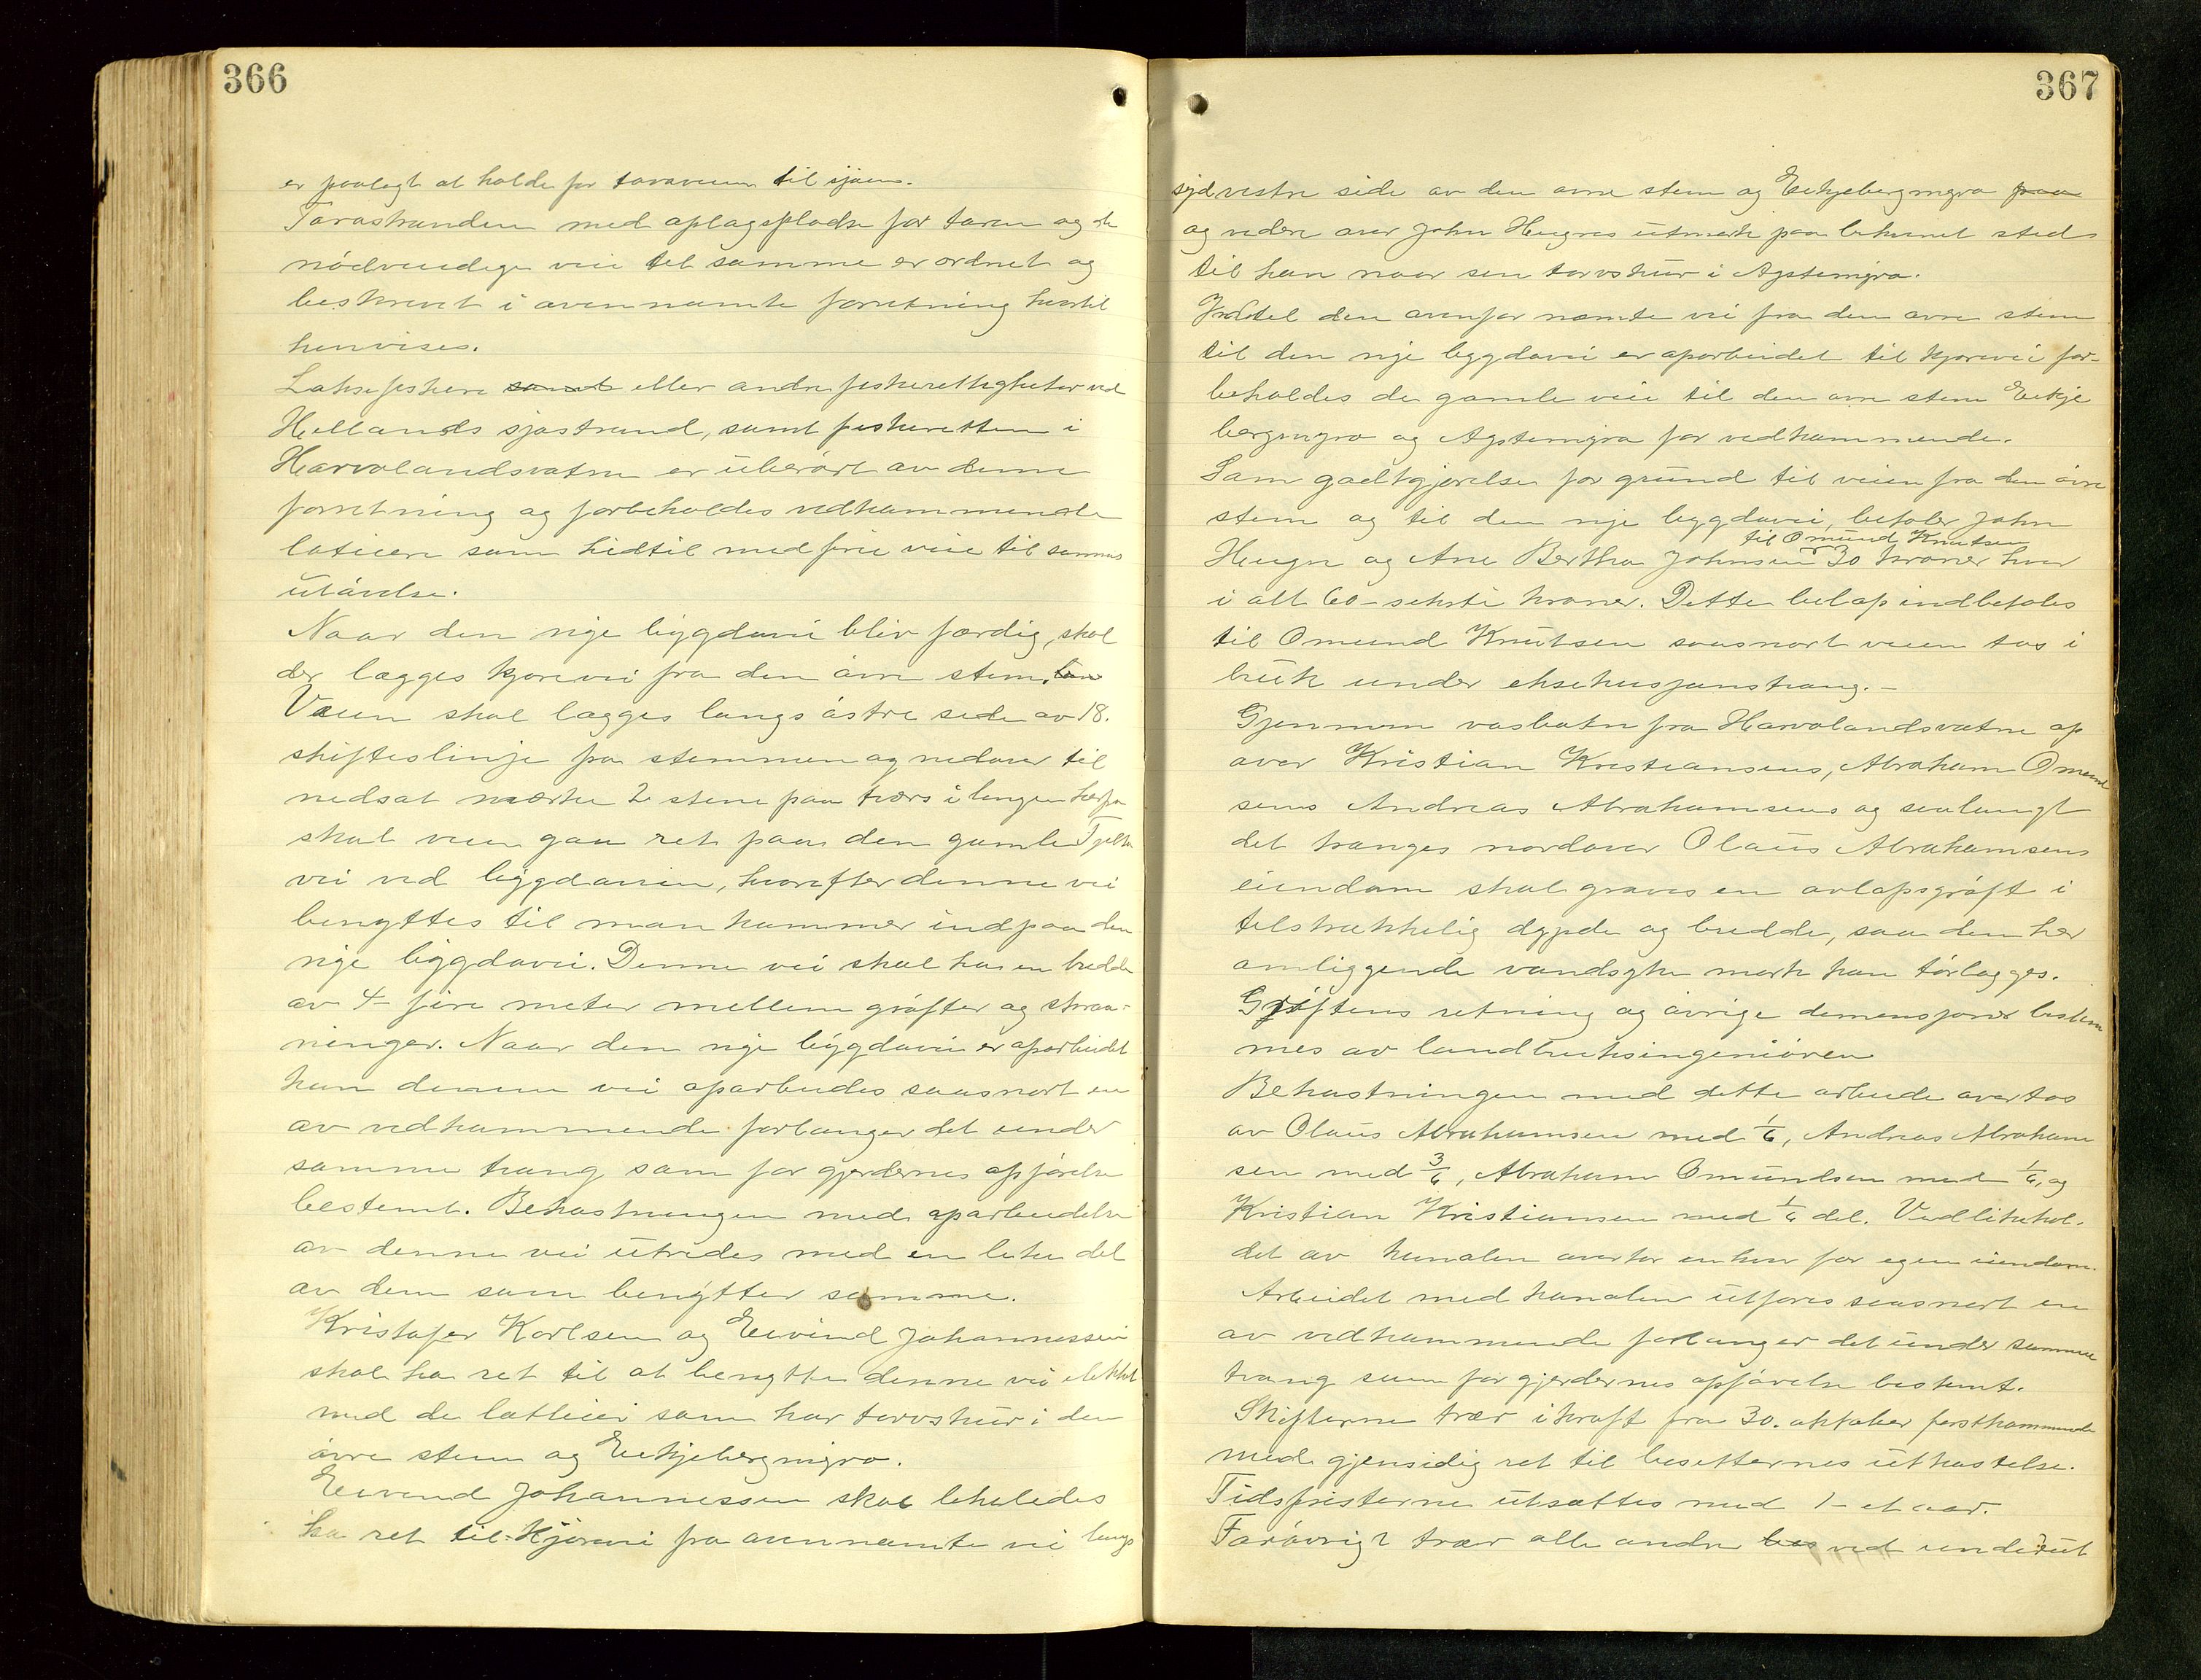 366
er paalagt at holde for taraveien til sjøen.
Tarastranden med oplagsplodse for taren og de
nødvendige veie til samme er ordnet og
beskrevet i ovennævnte forretning hvortil
henvises.
Laksefiskeri samt eller andre fiskerettigheter ved
Hellands sjøstrand, samt fiskeretten i
Harvolandsvatne er uberørt av denne
forretning og forbeholdes vedkommende
lotieiere som hidtil med frie veie til sammes
utøvelse.
Naar den nye bygdavei bliv færdig, skal
der lægges kjørevei fra den øvre stem.
Veien skal lægges langs østre side av 18.
skifteslinje fra stemmen og nedover til
nedsat mærke 2 stene paa tvers i lengen herfra
skal veien gaa ret paa den gamle Fjelds
vei ved bygdaveien, hvorefter denne vei
benyttes til man kommer ind paa den
nye bygdavei. Denne vei skal ha en bredde
av 4- fire meter mellem grøfter og skraa-
ninger. Naar den nye bygdavei er oparbeidet
kan denne vei oparbeides saasnart en
av vedkommende forlanger det under
samme tvang som for gjerdernes opførelse
bestemt. Bekostningen med oparbeidelse
av denne vei utredes med en like del
av dem som benytter samme.
Kristofer Karlsen og Eivind Johannessen
skal ha ret til at benytte denne vei likt
med de lotteier som har torvskur i den
øvre stem og Eikjebergmyra.
Eivind Johannessen skal likeledes
ha ret til kjørevei fra ovennevnte vei langs
367
sydvestre side av den øvre stem og Eikjebergmyra paa
og videre over John Heigres utmark paa bekvemt sted
til han naar sin torvskur i Agstemyra.
Indtil den ovenfor nævnte vei fra den øvre stem
til den nye bygdavei er oparbeidet til kjørevei for-
beholdes de gamle veie til den øvre stem Eikje
bergmyra og Agstemyra for vedkommende.
Som godtgjørelse for grund til veien fra den øvre
stem og til den nye bygdavei, betaler John
til Omund Knutsen
Heigre og Ane Bertha Johnsen 30 kroner hver
i alt 60- seksti kroner. Dette beløp indbetales
til Omund Knutsen saasnart veien tas i
bruk under eksekusjonstvang.-
Gjennem vasbotn fra Harvolandsvatne op
over Kristian Kristiansens, Abraham Omund
sens Andreas Abrahamsens og saalangt
det trænges nordover Olaus Abrahamsens
eiendom skal graves en avløpsgrøft i
tilstrækkelig dypde og bredde, saa den her
omliggende vandsyke mark kan tørlægges.
Grøftens retning og øvrige demensjoner bestem
mes av landbruksingeniøren
Bekostningen med dette arbeide overtas
av Olaus Abrahamsen med 1/6, Andreas Abraham
sen med 3/6, Abraham Omundsen med 1/6, og
Kristian Kristiansen med 1/6 del. Vedlikehol-
det av kanalen overtar enhver for egen eiendom.
Arbeidet med kanalen utføres saasnart en
av vedkommende forlanger det under samme
tvang som for gjerdernes opførelse bestemt.
Skifterne træ i kraft fra 30. oktober førstkommende
med gjensidig ret til besetternes utkastelse.
Tidsfristerne utsættes med 1- et aar.
Forøvrigt træ alle andre bes ved undeRut